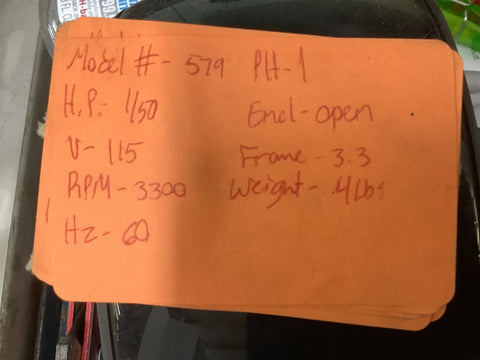 Model #- 579 PH-1
H.P.- 1/50 Encl-open
V- 115 Frame-3.3
RPM-3300 Weight- .4Lbs
Hz- 60